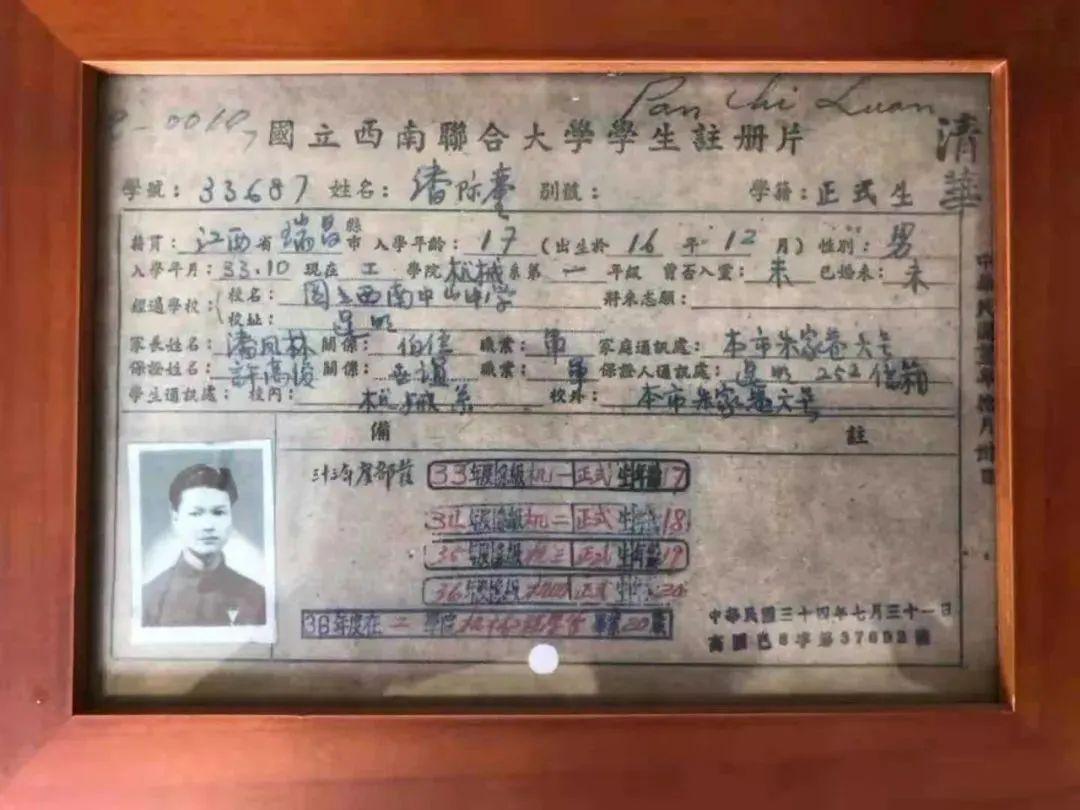 Pan Chi Luan
國立西南聯合大學學生註册片
清華
學號：33687 姓名：潘際鑾 別號： 學籍：正式生
籍貫：江西省瑞昌縣市 入學年齡：17 (出生於16年12月) 性別：男
入學年月：33.10 現在工學院机械系第一年級 曾否入黨：未 已婚未：未
經過學校： 校名：國立西南中山中學 將來志願：
校址：昆明
家長姓名：潘凤林 關係：伯侄 職業：軍 家庭通訊處：本市朱家巷六号
保證姓名：許高俊 關係： 職業：軍 保證人通訊處：昆明252信箱
學生通訊處：校內：机械系 校外：本市朱家巷六号
備 註
33年度 級机一正式生年齡17
34年度 級机二正式生 18
35年度 級机三正式生 19
36年度 級机四正式生 20
年度在工學院
中華民國三十四年七月三十一日